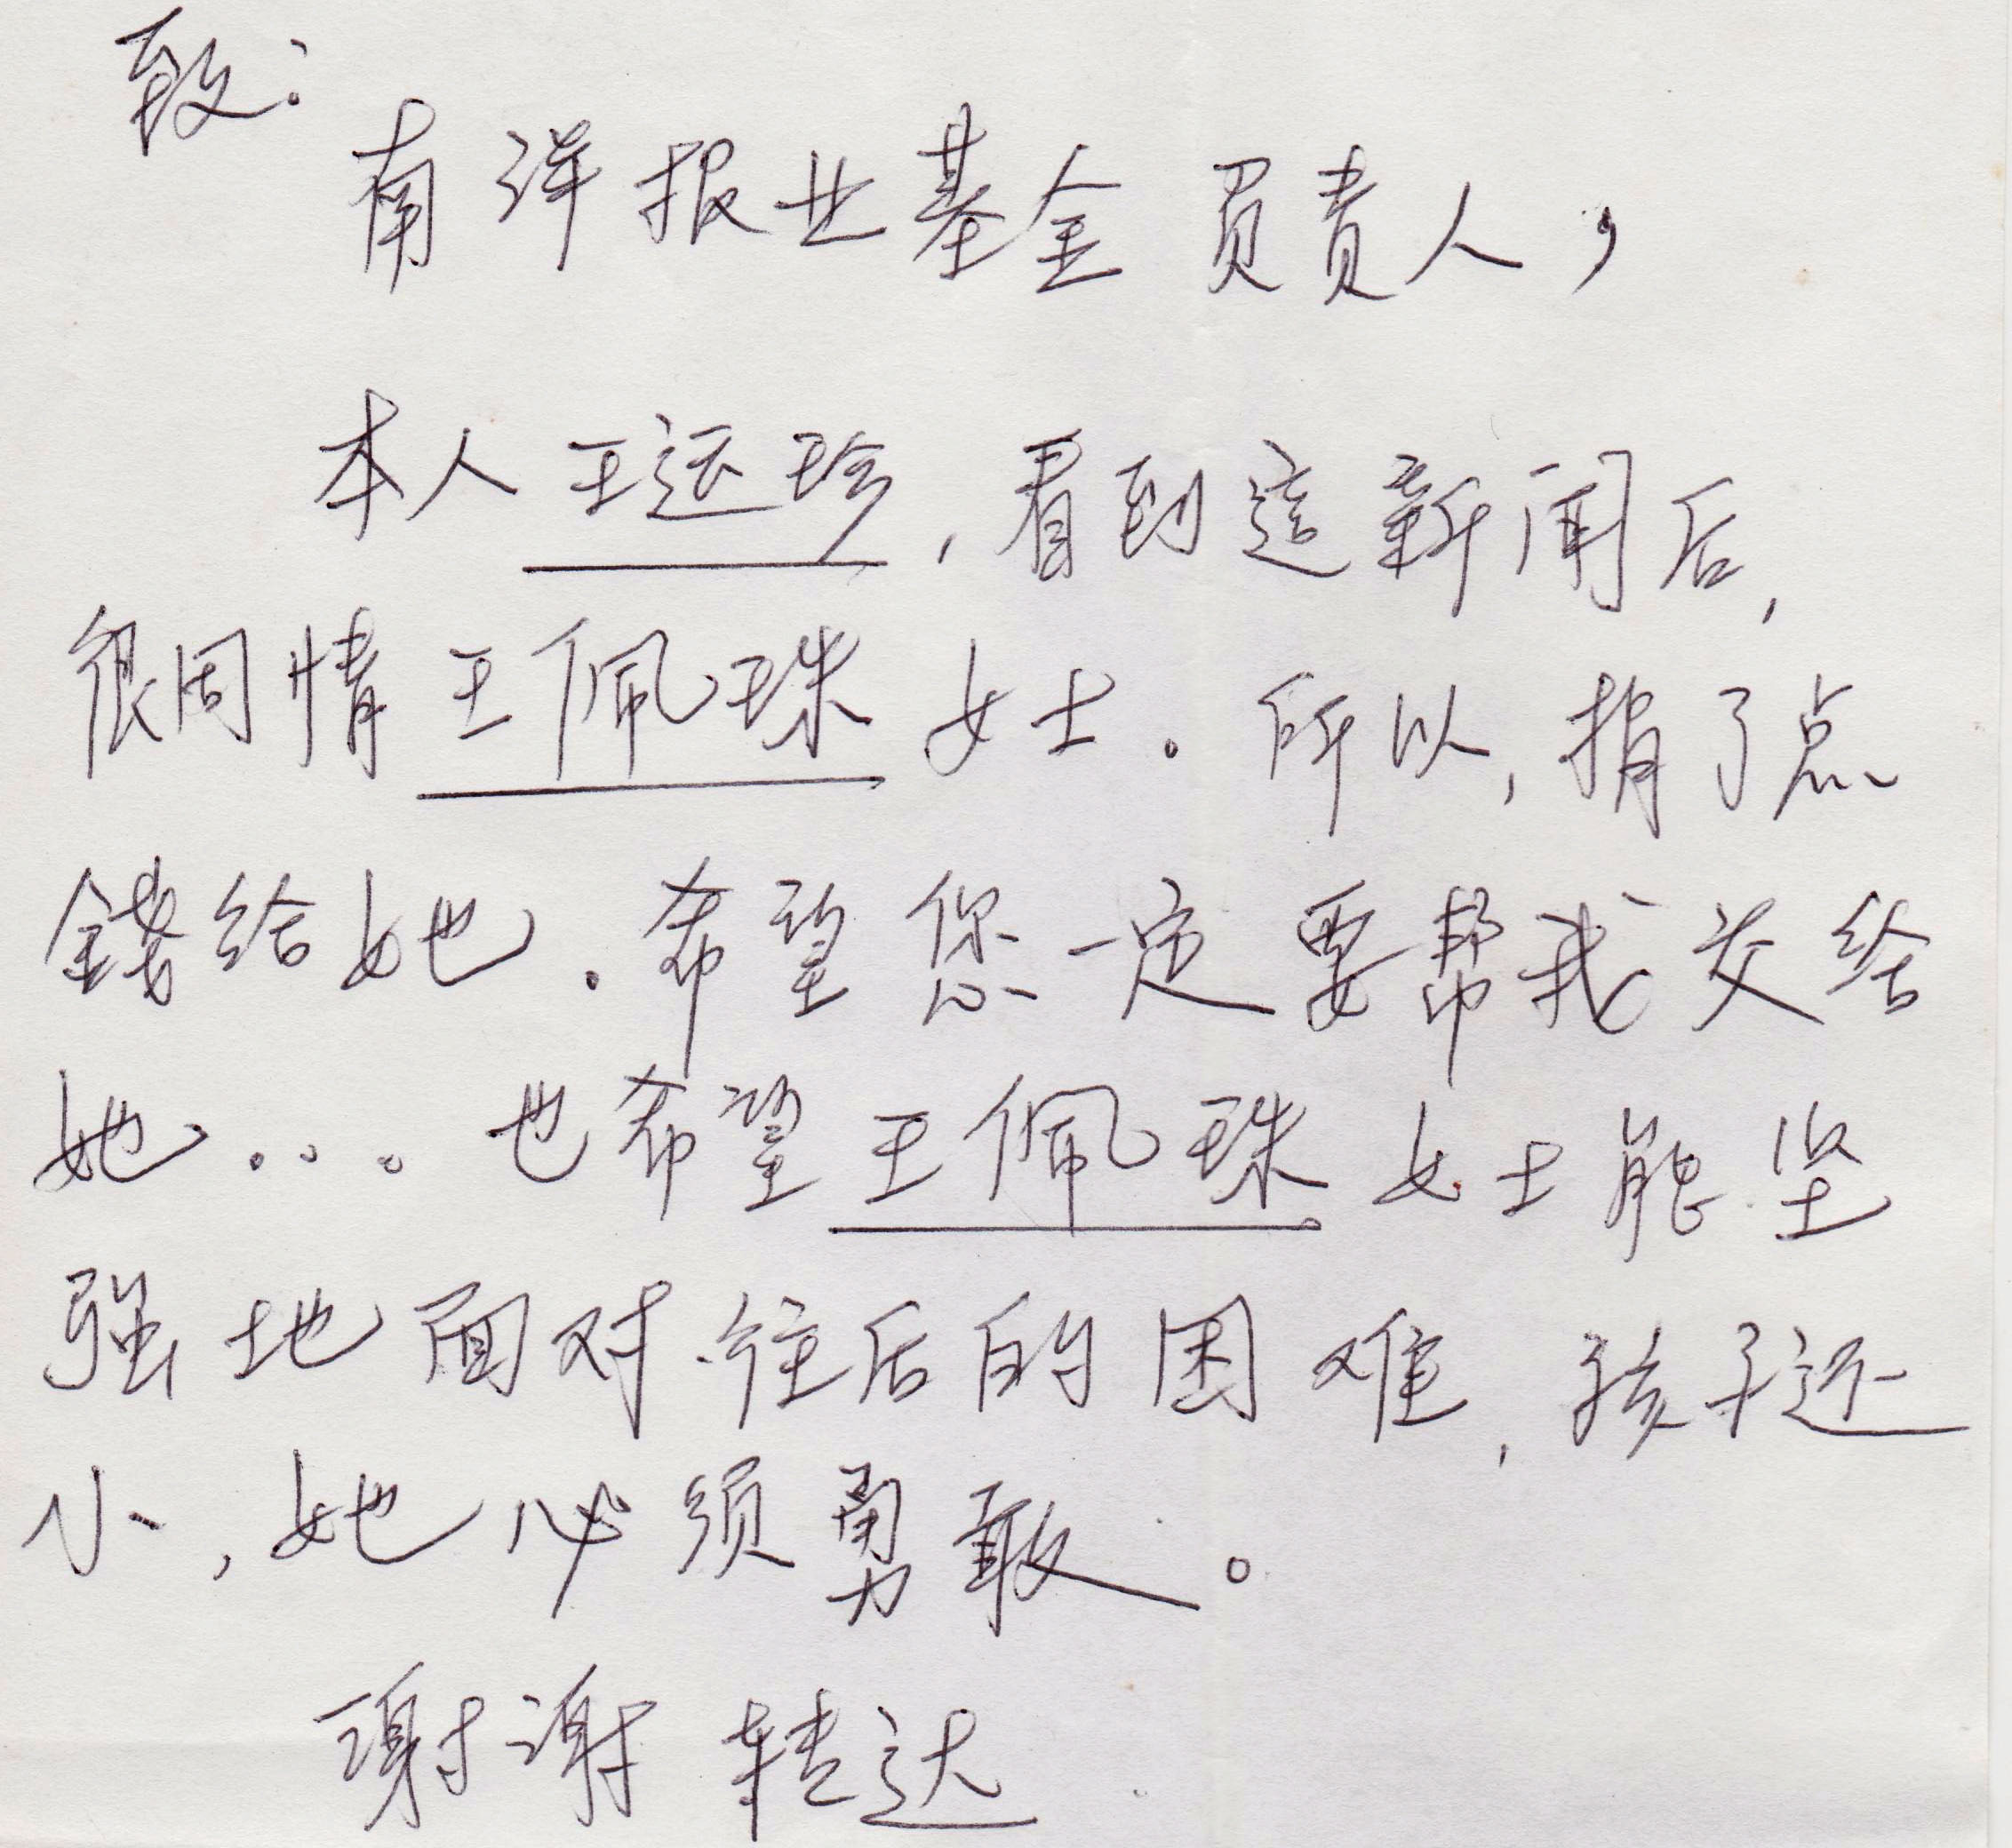 致:
南洋报业基金负责人，
本人王运珍，看到這新闻后，
很同情王佩珠女士。所以，捐了点
錢给她。希望您一定要帮我交给
她... 也希望王佩珠女士能坚
强地面对往后的困难，孩子还
小，她必须勇敢。
谢谢转达